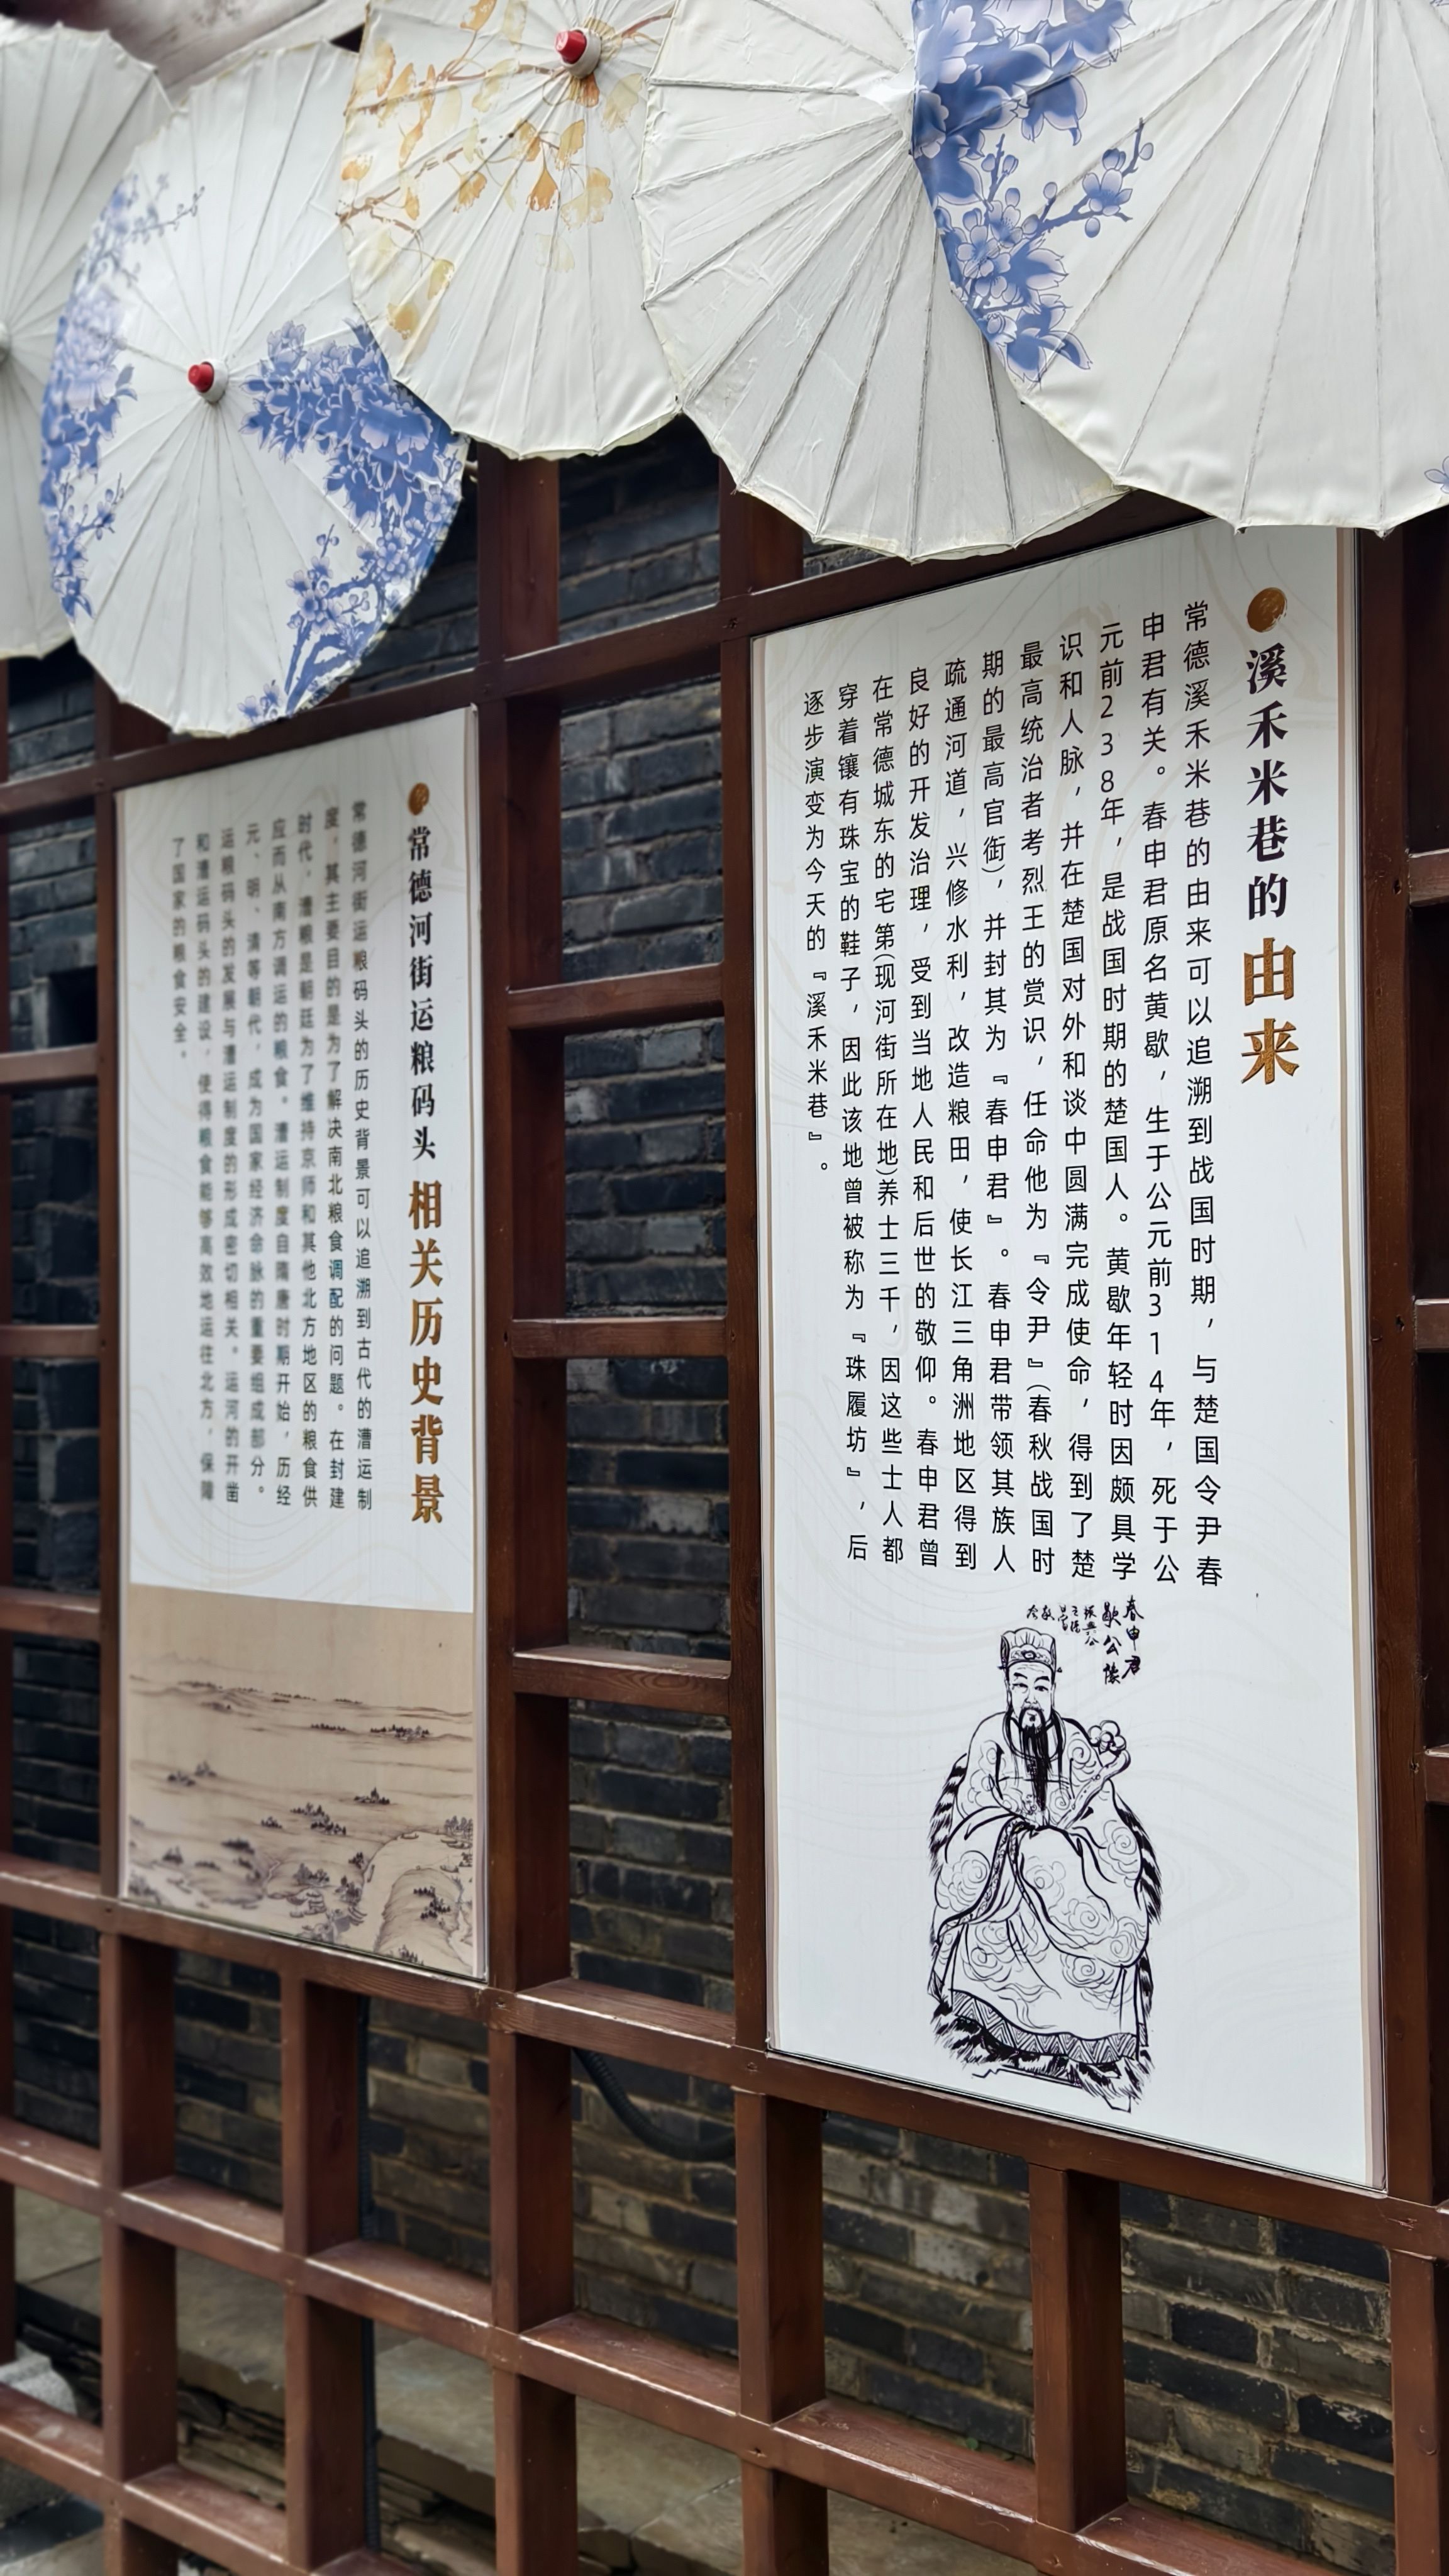 溪禾米巷的由来
常德溪禾米巷的由来可以追溯到战国时期，与楚国令尹春
申君有关。春申君原名黄歇，生于公元前314年，死于公
元前238年，是战国时期的楚国人。黄歇年轻时因颇具学
识和人脉，并在楚国对外和谈中圆满完成使命，得到了楚
最高统治者考烈王的赏识，任命他为『令尹』(春秋战国时
期的最高官衔)，并封其为『春申君』。春申君带领其族人
疏通河道，兴修水利，改造粮田，使长江三角洲地区得到
良好的开发治理，受到当地人民和后世的敬仰。春申君曾
在常德城东的宅第(现河街所在地)养士三千，因这些士人都
穿着镶有珠宝的鞋子，因此该地曾被称为『珠履坊』，后
逐步演变为今天的『溪禾米巷』。
春申君
歇公像
常德河街运粮码头相关历史背景
常德河街运粮码头的历史背景可以追溯到古代的漕运制
度，其主要目的是为了解决南北粮食调配的问题。在封建
时代，漕粮是朝廷为了维持京师和其他北方地区的粮食供
应而从南方调运的粮食。漕运制度自隋唐时期开始，历经
元、明、清等朝代，成为国家经济命脉的重要组成部分。
运粮码头的发展与漕运制度的形成密切相关。运河的开凿
和漕运码头的建设，使得粮食能够高效地运往北方，保障
了国家的粮食安全。